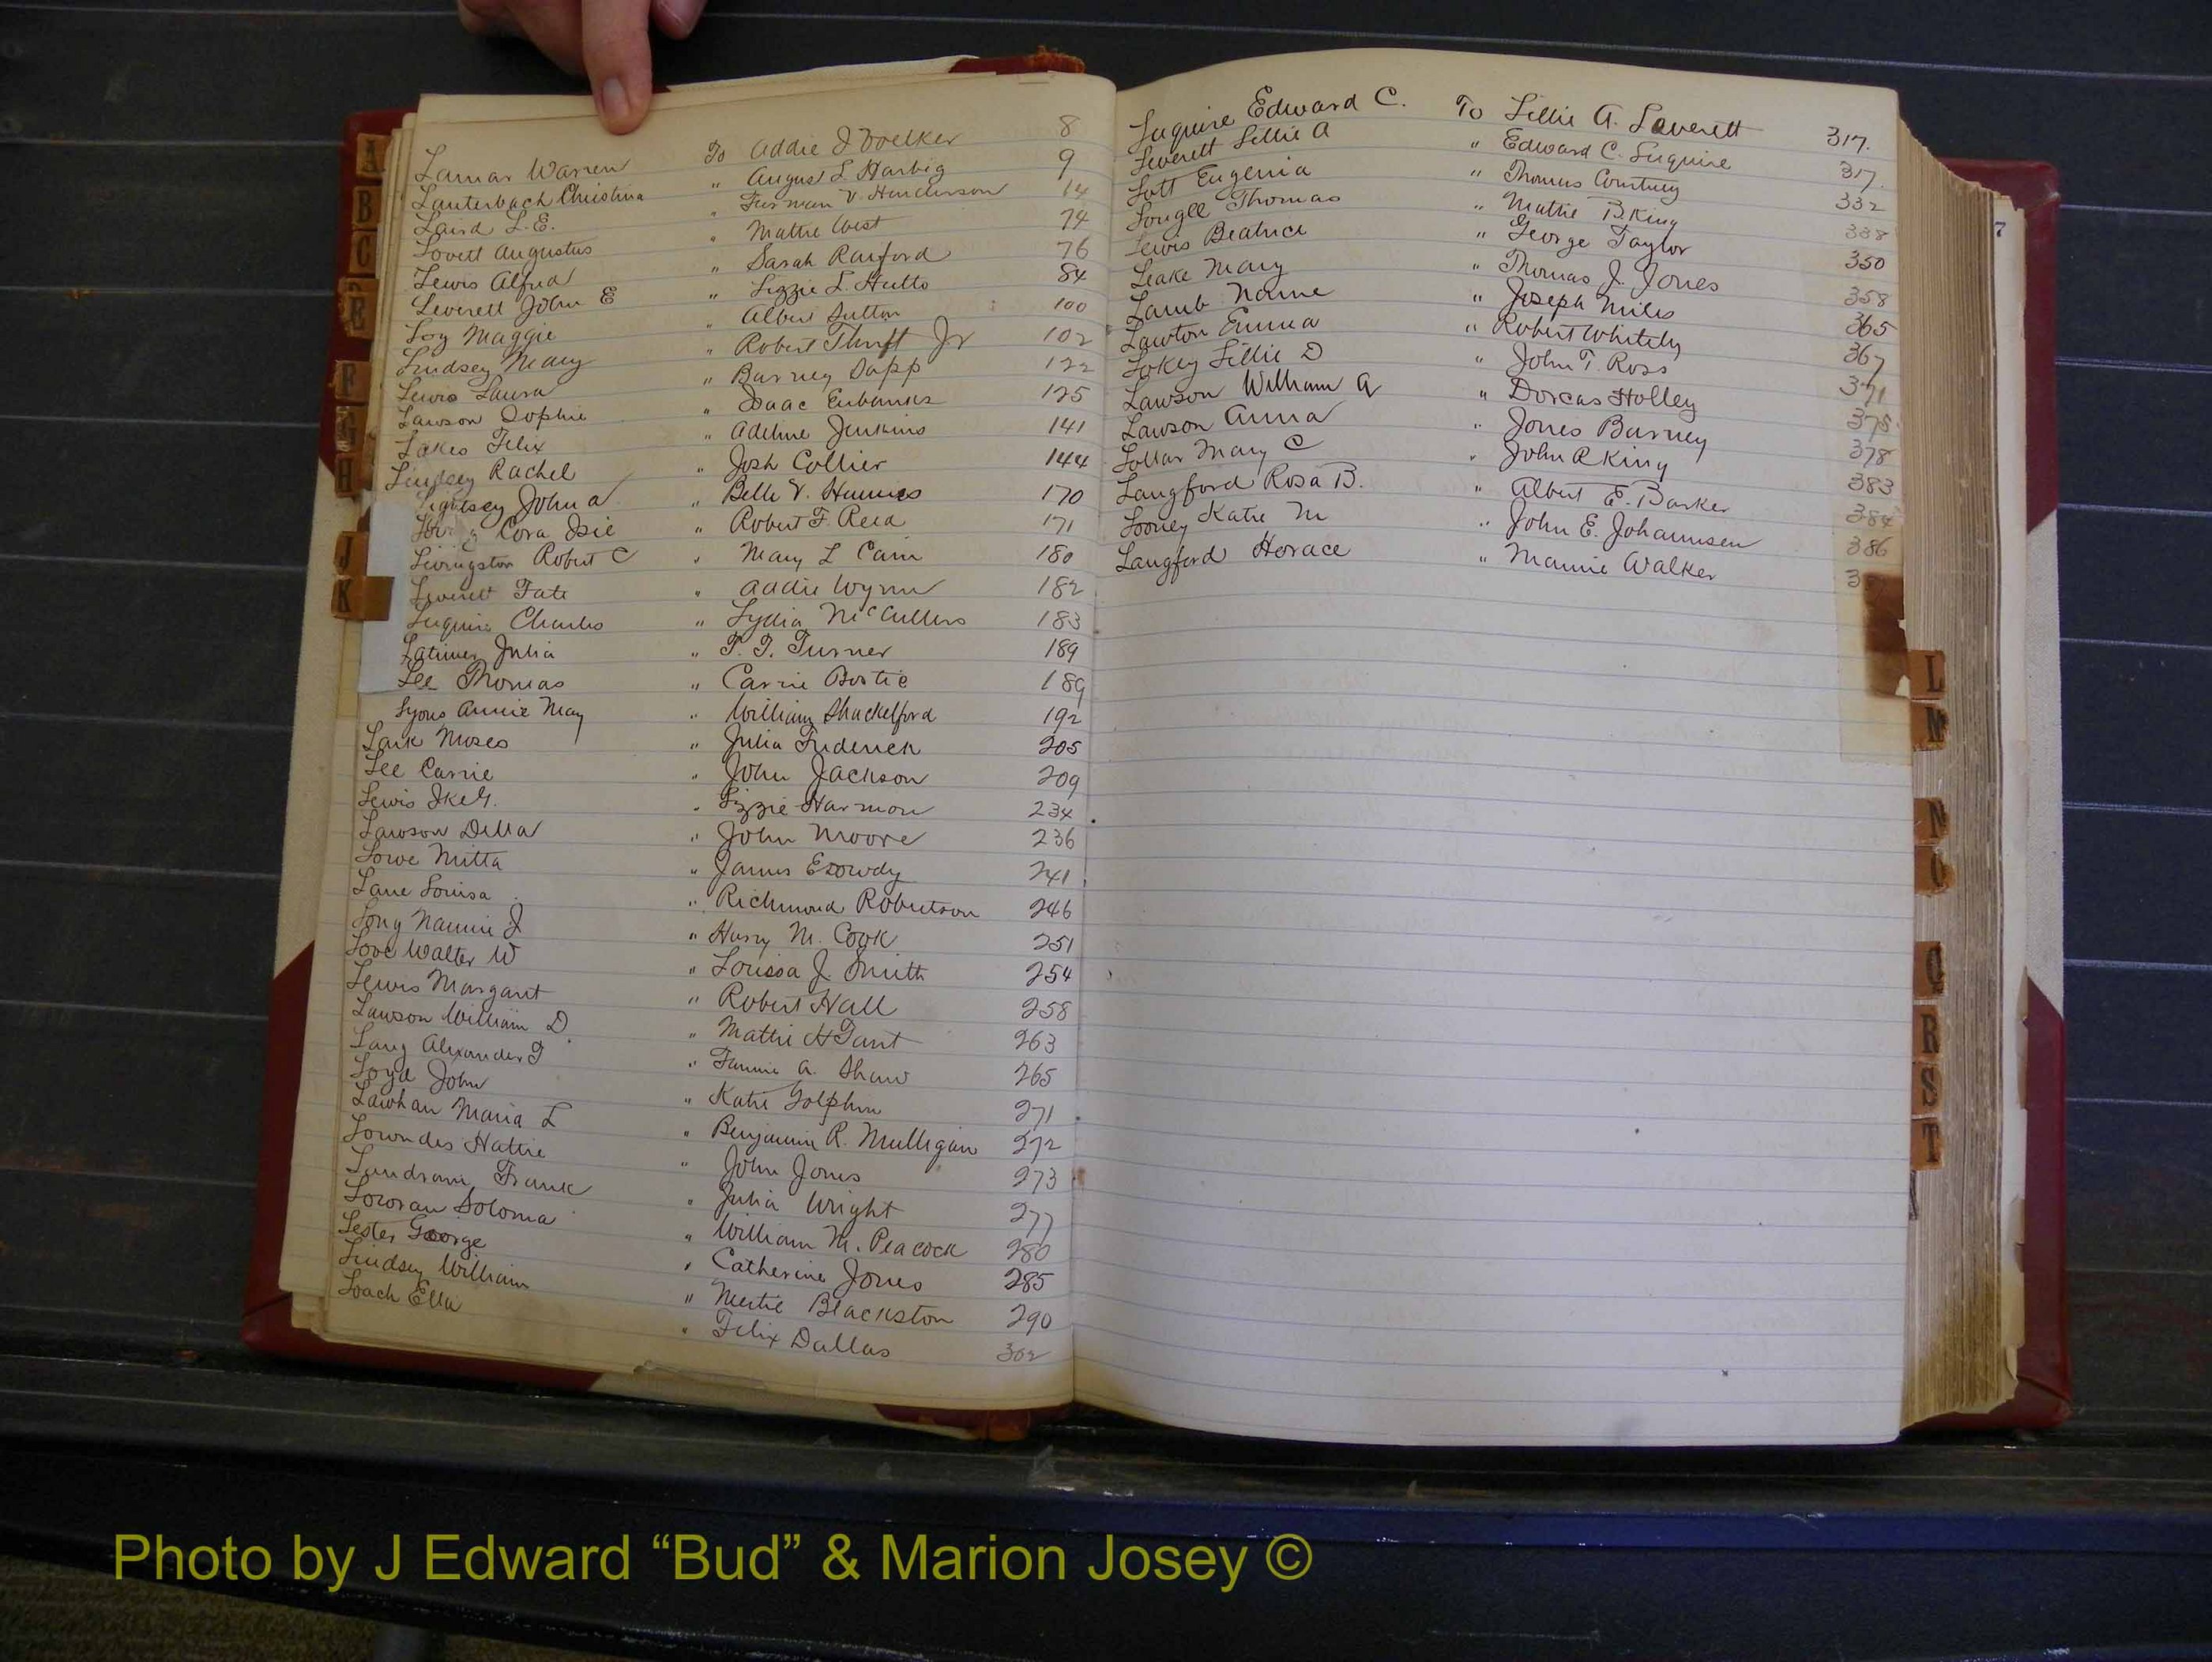 Lamar Warren To Addie J Voelker 8
Lauterbach Christina " August L Harbig 9
Laird L. E. " Furman V. Henderson 14
Lovett Augustus " Mattie West 74
Lewis Alfred " Sarah Raiford 76
Leverett John E " Lizzie L. Hutto 84
Loy Maggie " Albert Sutton 100
Lindsey Mary " Robert Thrift Jr 102
Lewis Laura " Barney Dapp 122
Lawson Sophie " Isaac Eubanks 125
Lakes Felix " Adeline Jenkins 141
Lindsey Rachel " Josh Collier 144
Lightsey John A " Belle V. 170
Cora Isie " Robert F. Reed 171
Livingston Robert C " Mary L Cain 180
Leverett Fate " Addie Wynn 182
Luquire Charles " Lydia McCullers 183
Latimer Julia " T. T. Turner 189
Lee Thomas " Carrie Bostic 189
Lyons Annie May " William Shackelford 192
Lark Moses " Julia Frederick 205
Lee Carrie " John Jackson 209
Lewis Ike G. " Lizzie Harmon 234
Lawson Della " John Moore 236
Lowe Mitta " James E Dowdy 241
Lane Louisa " Richmond Robertson 246
Long Nannie J " Harry M. Cook 251
Love Walter W " Lourssa J. Smith 254
Lewis Margaret " Robert Hall 258
Lawson William D " Mattie H Gant 263
Lang Alexander T " Fannie A. Shaw 265
Loyd John " Katie Golphin 271
Lawhan Maria L " Benjamin R. Mulligan 272
Lowndes Hattie " John Jones 273
Landram Frank " Julia Wright 277
Lowran Soloma " William M. Peacock 280
Lester George " Catherine Jones 285
Lindsey William " Mertie Blackston 290
Loach Ella " Felix Dallas 302
Luquire Edward C. To Lillie A. Leverett 317.
Leverett Lillie A " Edward C. Luquire 317.
Lott Eugenia " Thomas Courtney 332
Lougee Thomas " Mattie B. King 338
Lewis Beatrice " George Taylor 350
Leake Mary " Thomas J. Jones 358
Lamb Namie " Joseph Miles 365
Lawton Emma " Robert Whitely 367
Lokey Lillie D " John T. Ross 371
Lawson William A " Dorcas Holley 375
Lawson Anna " Jones Barney 378
Lollar Mary C " John R King 383
Langford Rosa B. " Albert E. Barker 384
Looney Katie M " John E. Johannsen 386
Langford Horace " Mamie Walker
A
B
C
E
F
G
H
J
K
7
L
M
N
O
Q
R
S
T
Photo by J Edward “Bud” & Marion Josey ©